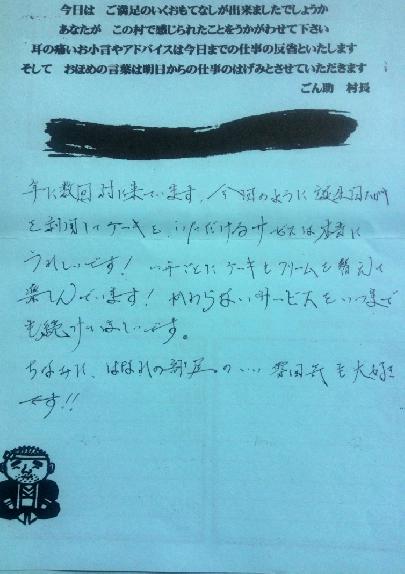 今日は ご満足のいくおもてなしが出来ましたでしょうか
あなたが この村で感じられたことをうかがわせて下さい
耳の痛いお小言やアドバイスは今日までの仕事の反省といたします
そして おほめの言葉は明日からの仕事のはげみとさせていただきます
ごん助 村長
年に数回 村に来ています。今回のように誕生日
を利用してケーキを いただけるサービスは 本当に
うれしいです! 一年ごとに ケーキも クリームを 替えて
楽しんでいます! かわらないサービスを いつまで
も続けてほしいです。
ちなみに、はなれの部屋の… 雰囲気 も 大好き
です!!